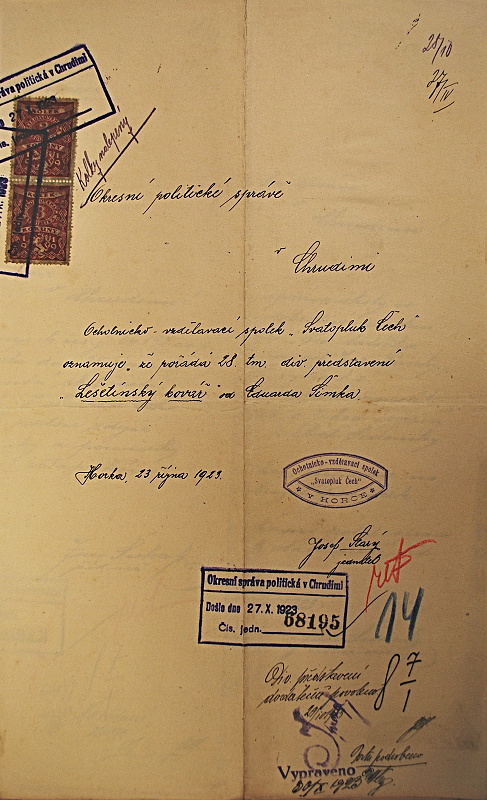 25/10
27/IV
správa politická v Chrudimi
Kolky nalepený
Okresní politické správě
v
Chrudimi
Ochotnicko-vzdělavací spolek „Svatopluk Čech“
oznamuje, že pořádá 28. tm. div. představení
„Lešetínský kovář“ od Eduarda Šimka.
Horka, 23 října 1923.
Ochotnicko-vzdělavací spolek
„Svatopluk Čech“
V HORCE
Josef Starý
jednatel
Okresní správa politická v Chrudimi
Došlo dne 27.X.1923
Čís. jedn. 68195
14
Div. představení
dodatečně povoleno
8 7/1
Vypraveno
30/X 1923